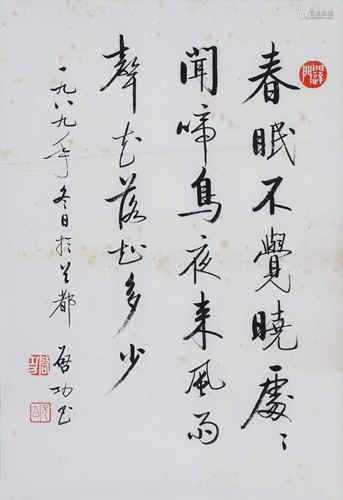 春眠不覺曉處〻
聞啼鳥夜来風雨
聲花落知多少
一九八九年冬日於首都 啟功書